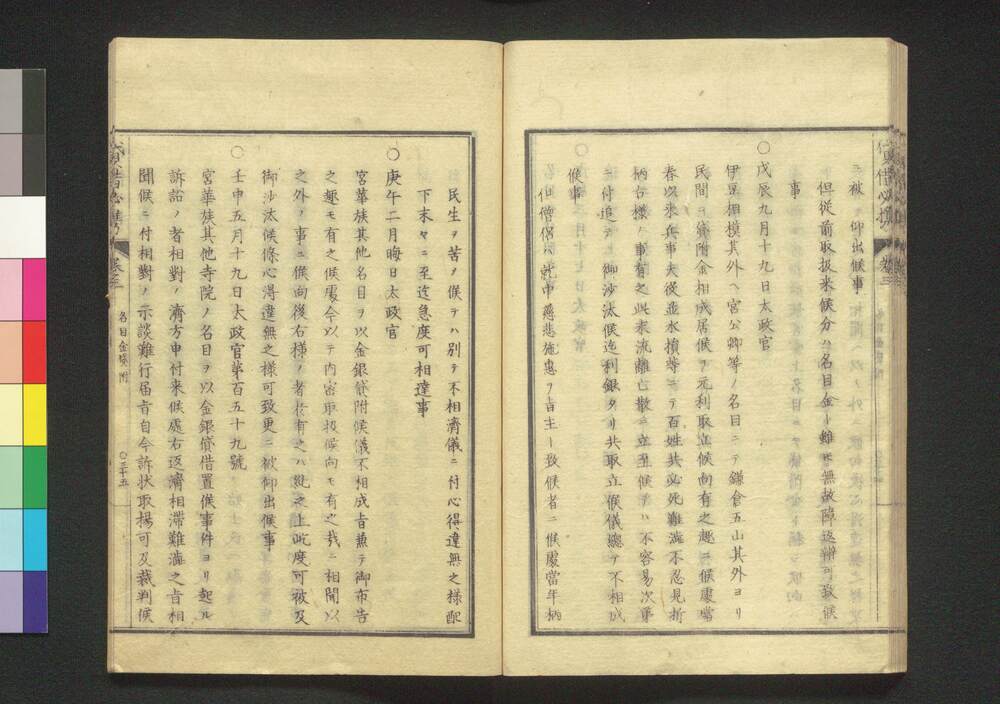 ニ被 仰出候事
但従前取扱来候分ハ名目金ト雖モ無故障返辨可致候
事
〇戊辰九月十九日太政官
伊豆相模其外ヘ宮公卿等ノ名目ニテ鎌倉五山其外ヨリ
民間ヘ貸附金相成居候ヲ元利取立候向有之趣ニ候處當
春以来兵事夫役並水損等ニテ百姓共必死難澁不忍見折
柄右様ノ事有之此末流離亡散ニ立至候テハ不容易次第
ニ付追テ 御沙汰候迄利銀タリ共取立候儀總テ不相成
候事
但僧侶ハ就中慈悲施恵ヲ旨主ト致候者ニ候處當年柄
民生ヲ苦メ候テハ別テ不相済儀ニ付心得違無之様配
下末々ニ至迄急度可相達事
〇庚午二月晦日太政官
宮華族其他名目ヲ以金銀貸附候儀不相成旨兼テ御布告
之趣モ有之候處今以テ内密取扱候向モ有之哉ニ相聞以
之外ノ事ニ候向後右様ノ者於有之ハ糺之上此度可被及
御沙汰候條心得違無之様可致更ニ被仰出候事
〇壬申五月十九日太政官第百五十九號
宮華族其他寺院ノ名目ヲ以金銀貸借置候事件ヨリ起ル
訴訟ノ者相對ノ済方申付来候處右返済相滞難澁之旨相
聞候ニ付相對ノ示談難行届旨自今訴状取揚可及裁判候
貸借必携
巻三
名目金貸附
〇三十五